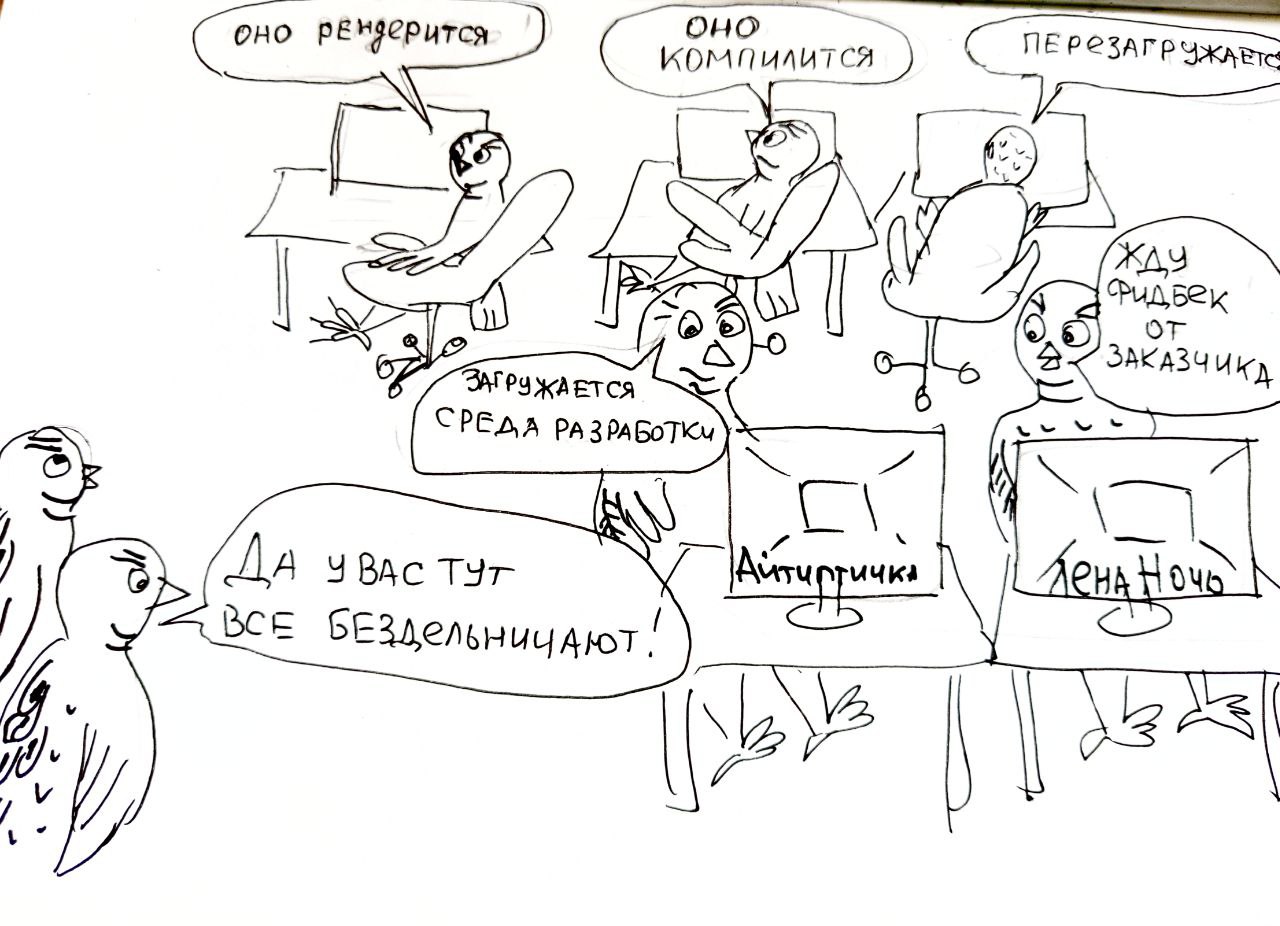 ОНО РЕНДЕРИТСЯ
ОНО
КОМПИЛИТСЯ
ПЕРЕЗАГРУЖАЕТСЯ
ЖДУ
ФИДБЕК
ОТ
ЗАКАЗЧИКА
ЗАГРУЖАЕТСЯ
СРЕДА РАЗРАБОТКИ
ДА У ВАС ТУТ
ВСЕ БЕЗДЕЛЬНИЧАЮТ!
Айтиптичка
Лена Ночь